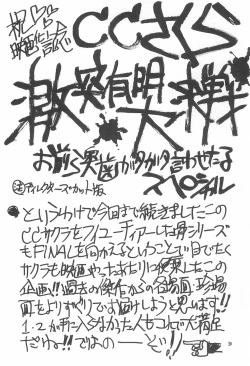 祝!
映画化記念
CCさくら
激突有明
大決戦
お前ら奥歯ガタガタ言わせたる
スペシャル
ディレクターズ・カット版
●というわけで今回まで続きましたこの
CCサクラをフィーチュアーした シリーズ
もFINALを向かえるということで目でたく
サクラも映画
企画!!過去の傑作から名場面・珍場
面をよりすぐりでお届けしようと思います!!
1・2が手に入らなかった人もこれで大満足
だわね!!ではよの――ぞ!!